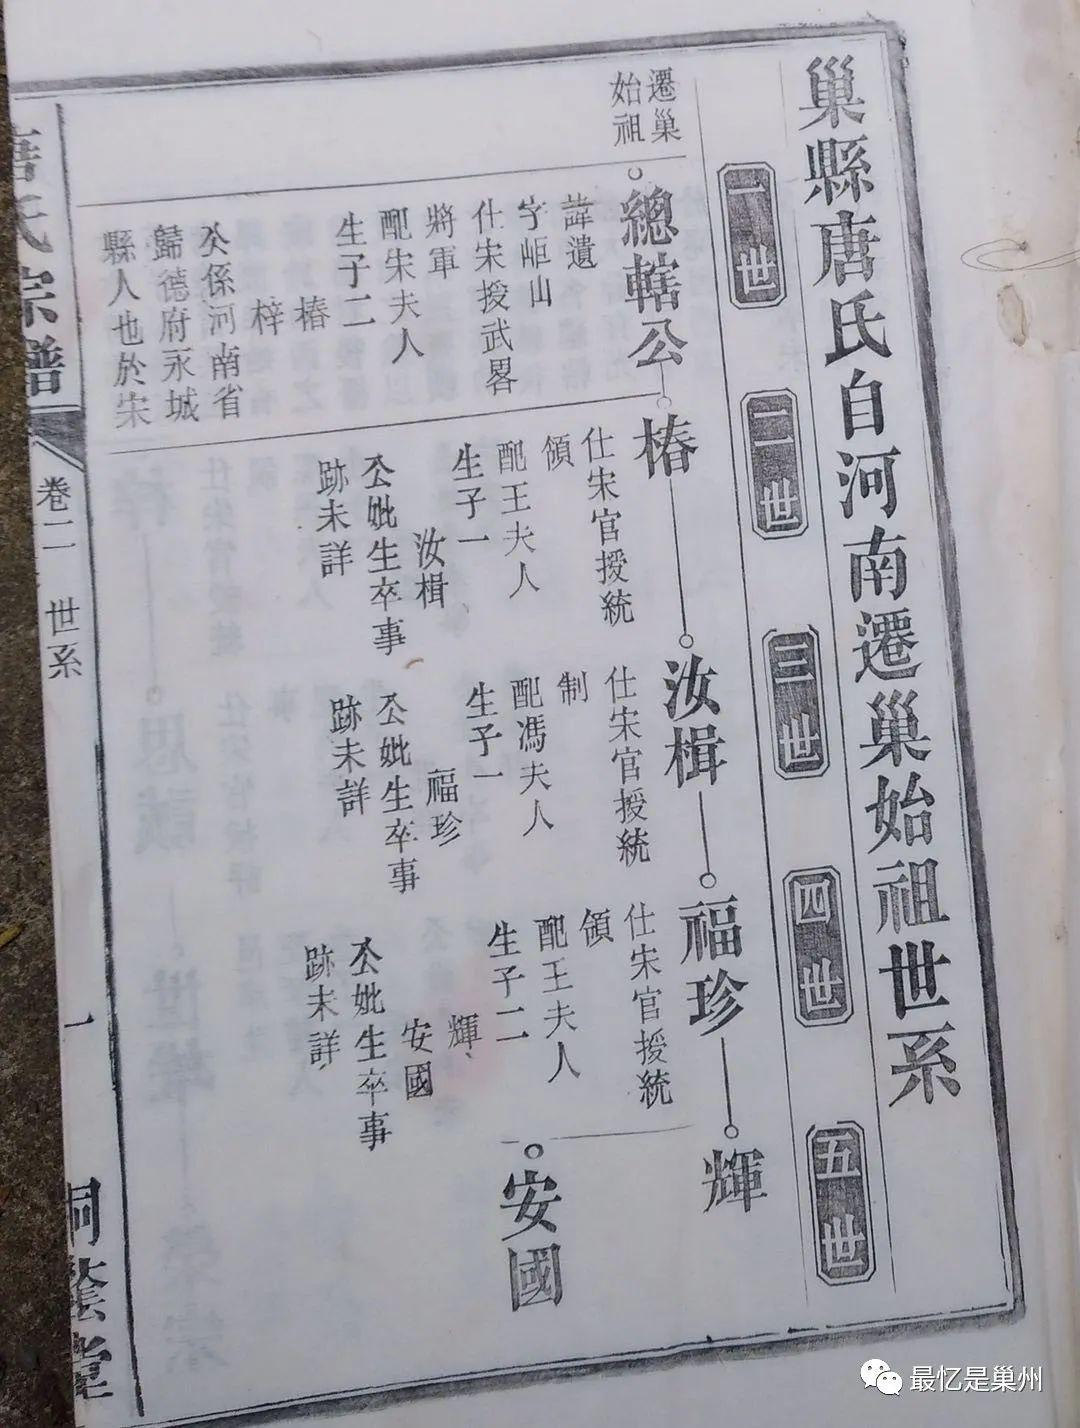 巢縣唐氏自河南遷巢始祖世系
一世
二世
三世
四世
五世
遷巢
始祖
總轄公
諱遺
字岠山
仕宋授武畧
將軍
配宋夫人
生子二
椿
梓
公係河南省
歸德府永城
縣人也於宋
椿
仕宋官授統
領
配王夫人
生子一
汝楫
公妣生卒事
跡未詳
汝楫
仕宋官授統
制
配馮夫人
生子一
福珍
公妣生卒事
跡未詳
福珍
仕宋官授統
領
配王夫人
生子二
輝
安國
公妣生卒事
跡未詳
輝
安國
唐氏宗譜
卷二 世系
一
最忆是巢州